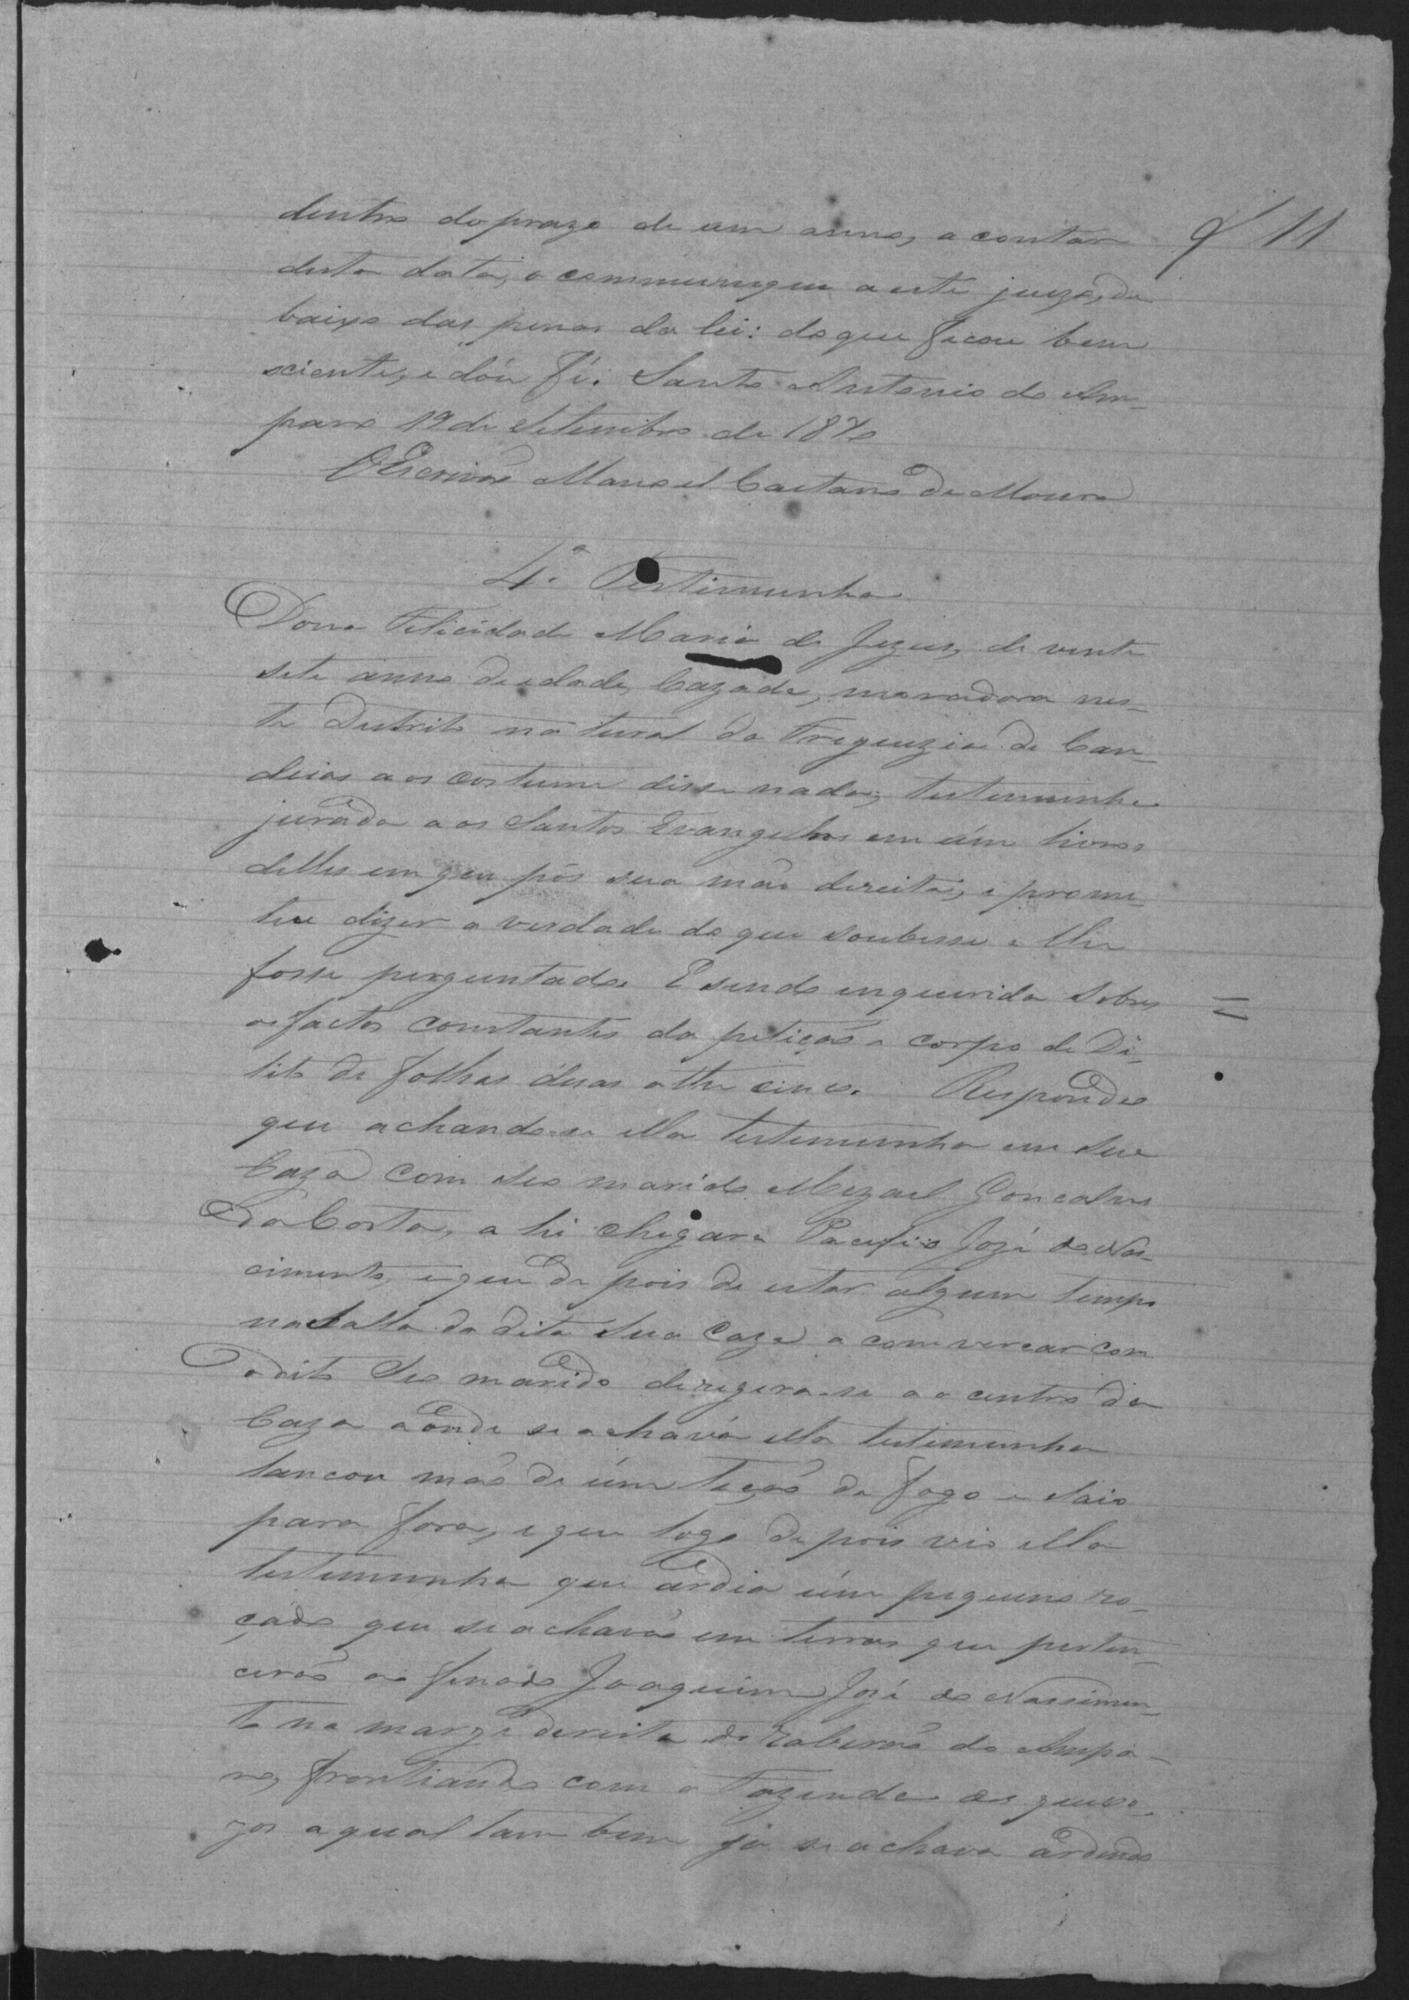 f 11
dentro do prazo de um anno, a contar
desta data, o communique a este juizo, de
baixo das penas da lei: do que ficou bem
sciente, e dóu fé. Santo Antonio do Am-
paro 19 de Setembro de 1870
O Escrivão Manoel Caetano de Moura
4.ª Testimunha
Dona Felicidade Maria de Jezus, de vente
sete annos de edade, Cazada, moradora nes-
te Destrito natural da Freguezia de Can-
deias aos costume disse nada, testemunha
jurada aos Santos Evangelhos em úm livro
delles em que pôs sua mão dereita, e prome-
teu dizer a verdade do que soubesse e lhe
fosse perguntado. E sendo enquerida sobre
os factos constantes da petição e corpo de De-
lito de folhas duas athe cinco. Respondeo
que achando-se ella testemunha em sua
Caza com seo marido Mizael Goncalves
Da Costa, a hi chegara Pacifio Jozé do Nas-
cimento, e que de pois de estar algum tempo
na Salla da dita sua Caza a comvercar com
o dito Seo marido deregera-se ao centro da
Caza aonde se achava ella testimunha
lancou mão de úm teção de fogo e saio
para fora, e que logo de pois vio ella
testemunha que ardia úm pequeno ro-
çado que se achava em terras que perten-
cerão ao finado Joaquim Jozé do Nassimen-
to na marge dereita do Reberão do Ampa-
ro, frontiando com a Fazenda dos
a qual tam bem ja se achava ardendo